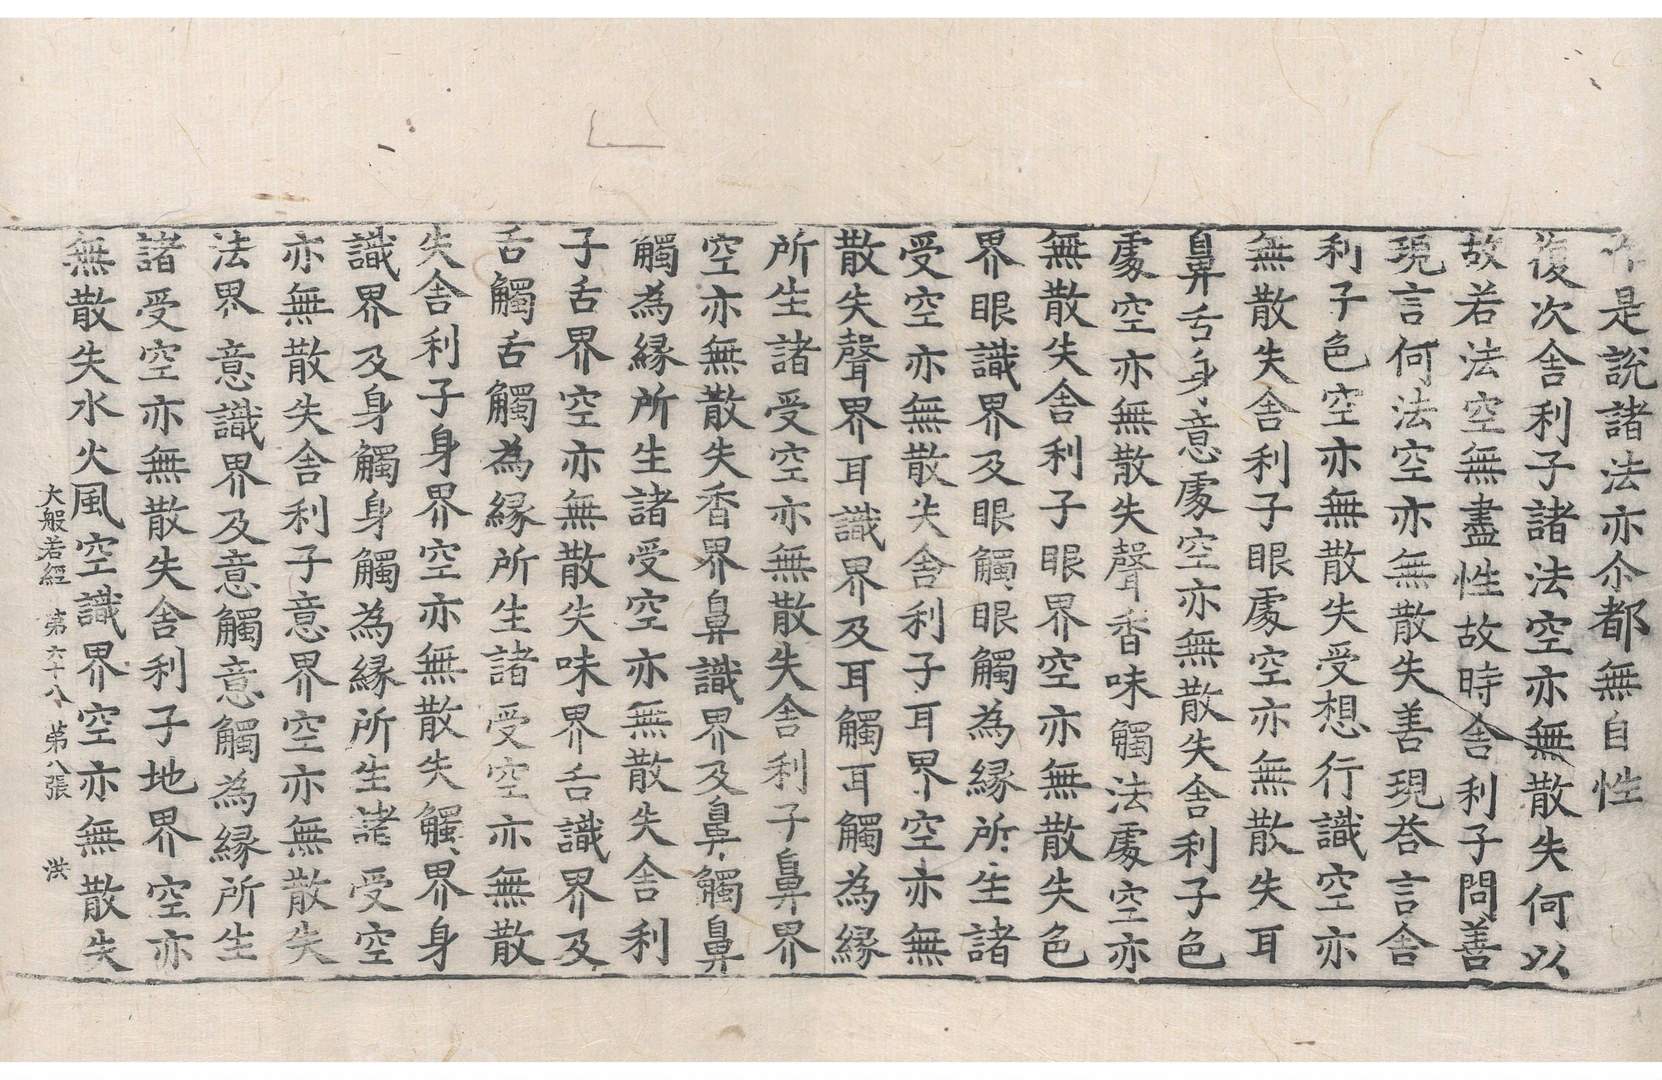 作是說諸法亦尒都無自性
復次舍利子諸法空亦無散失何以
故若法空無盡性故時舍利子問善
現言何法空亦無散失善現荅言舍
利子色空亦無散失受想行識空亦
無散失舍利子眼處空亦無散失耳
鼻舌身意處空亦無散失舍利子色
處空亦無散失聲香味觸法處空亦
無散失舍利子眼界空亦無散失色
界眼識界及眼觸眼觸為緣所生諸
受空亦無散失舍利子耳界空亦無
散失聲界耳識界及耳觸耳觸為緣
所生諸受空亦無散失舍利子鼻界
空亦無散失香界鼻識界及鼻觸鼻
觸為緣所生諸受空亦無散失舍利
子舌界空亦無散失味界舌識界及
舌觸舌觸為緣所生諸受空亦無散
失舍利子身界空亦無散失觸界身
識界及身觸身觸為緣所生諸受空
亦無散失舍利子意界空亦無散失
法界意識界及意觸意觸為緣所生
諸受空亦無散失舍利子地界空亦
無散失水火風空識界空亦無散失
大般若經 第六十八 第八張 洪